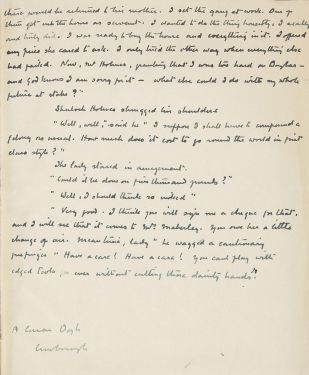 there would be returned to his mother. I set the gang at work. One of
them got into the house as servant. I wanted to do the thing honestly. I really
and truly did. I was ready to buy the house and everything in it. I offered
any price she cared to ask. I only tried the other way when everything else
had failed. Now, Mr Holmes, granting that I was too hard on Douglas –
and God knows I am sorry for it – what else could I do with my whole
future at stake?"
Sherlock Holmes shrugged his shoulders
"Well, well," said he "I suppose I shall have to compound a
felony as usual. How much does it cost to go round the world in first
class style?"
The lady stared in amazement.
"Could it be done on five thousand pounds?"
"Well, I should think so indeed"
"Very good. I think you will sign me a cheque for that,
and I will see that it comes to Mrs Maberley. You owe her a little
change of air. Meantime, lady" he wagged a cautionary
forefinger "Have a care! Have a care! You can't play with
edged tools for ever without cutting those dainty hands."
A Conan Doyle
Crowborough